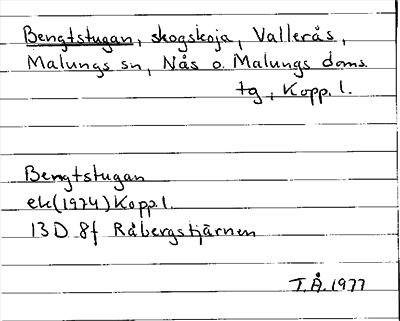 Bengtstugan, skogskoja, Vallerås,
Malungs sn, Nås o. Malungs doms.
tg, Kopp. l.
Bengtstugan
ek(1974)Kopp.l.
13D 8f Råbergstjärnen
T.Å.1977